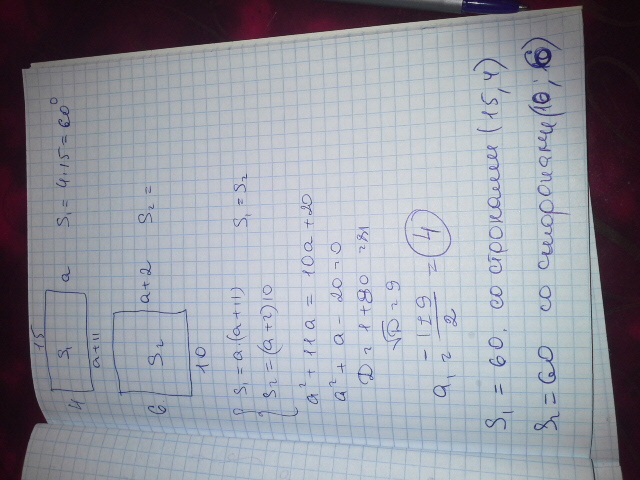 15
4 S₁ a S₁ = 4·15 = 60⁰
a+11
6 S₂ a+2 S₂ =
10
S₁ = a·(a+11) S₁ = S₂
S₂ = (a+2)10
a² + 11a = 10a + 20
a² + a - 20 = 0
D = 1 + 80 = 81
√D = 9
a₁ = -1+9/2 = 4
S₁ = 60. со строналии (15,4)
S₂ = 60 со сторонами (10; 6)